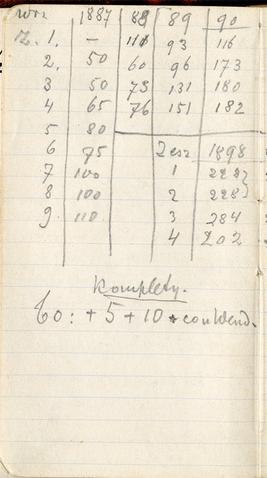 1887 88 89 90
Z. 1. — 111 93 116
2. 50 60 96 173
3 50 73 131 180
4 65 76 151 182
5 80
6 75 Zesz 1898
7 100 1 222
8 100 2 228
9. 110 3 284
4 202
Komplety.
60: + 5 + 10 +